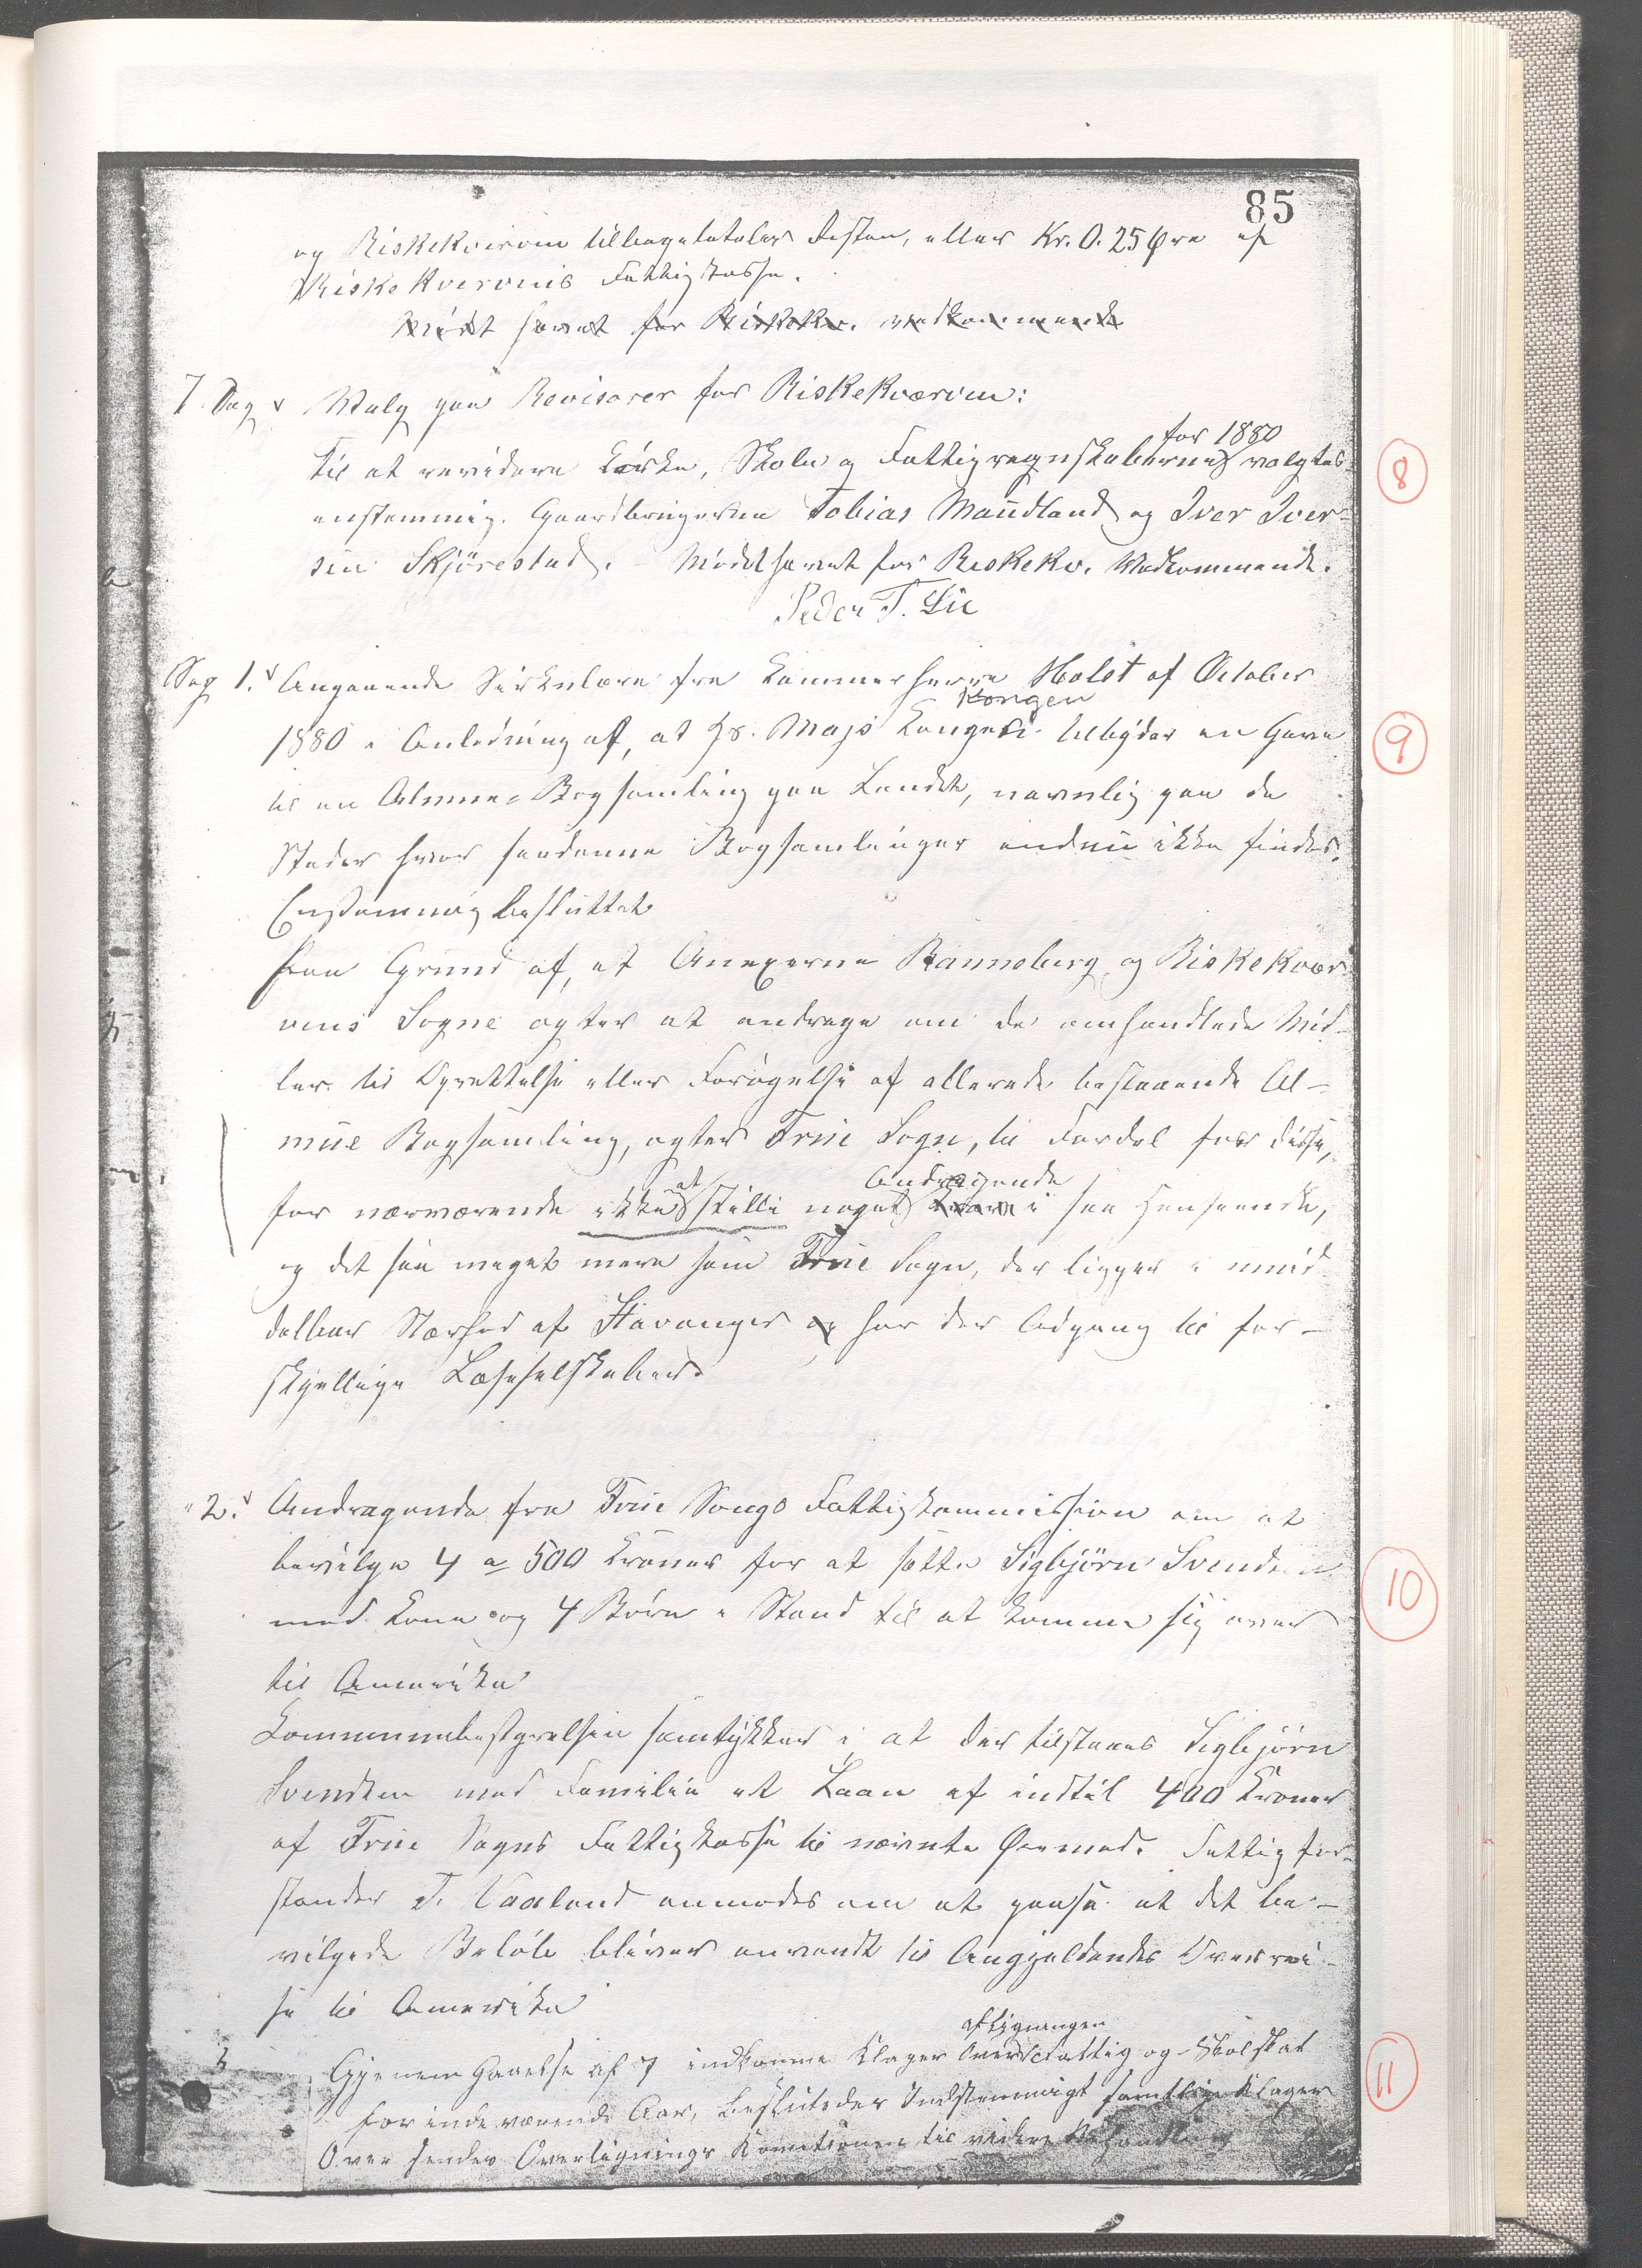 85
og Riskekværven tilbagebetaler Resten, eller Kr. 0. 25 Øre af
Riskekvervens Fattigkasse.
Mødet hævet for Riskekv. vedkommende
7. Sag Valg paa Revisorer for Riskekværven:
for 1880
til at revidere Kirke, Skole og Fattigregnskaberne valgtes
enstemmig. Gaardbrugerne Tobias Maudland og Iver Iver-
sen Skjørestad. - Mødet hævet for Riskekv. Vedkommende.
Peder T. Lie
Sag 1. Angaaende Sirkulære fra Kammerherre Holst af October
Kongen
1880 i Anledning af, at Hs. Maj. Kongen tilbyder en Gave
til en Almue-Bogsamling paa Landet, navnlig paa de
Steder hvor saadanne Bogsamlinger endnu ikke findes.
Enstemmig besluttet
Paa Grund af, at Anexerne Ranneberg og Riskekvær-
vens Sogne agter at andrage om de omhandlede Mid-
ler til Oprettelse eller Forøgelse af allerede bestaaende Al-
mue Bogsamling, agter Frue Sogn, til Fordel for disse,
at Andragende
for nærværende ikke stille noget Krav i saa Henseende,
og det saa meget mere som Frue Sogn, der ligger i umid-
delbar Nærhed af Stavanger og har der Adgang til for-
skjellige Læseselskaber.
" 2. Andragende fra Frue Songs Fattigkommission om at
bevilge 4 a 500 Kroner for at sætte Sigbjörn Svendsen
med Kone og 4 Børn i Stand til at komme sig over
til Amerika
Kommunebestyrelsen samtykker i at der tilstaaes Sigbjörn
Svendsen med Familie et Laan af indtil 400 Kroner
af Frue Sogns Fattigkasse til nævnte Øiemed. Fattigfor-
stander T. Vaaland anmodes om at paase at det be-
vilgede Beløb bliver anvendt til Angjældendes Overrei-
se til Amerika
afligningen
3 Gjenem Gaaelse af 7 indkomne Klager Over Fattig og Skolskat
for inde værende Aar, besluttedes Endstemmigt samtlige Klager
Over sendes Overlignings Komitionen til videre Behandling
8
9
10
11